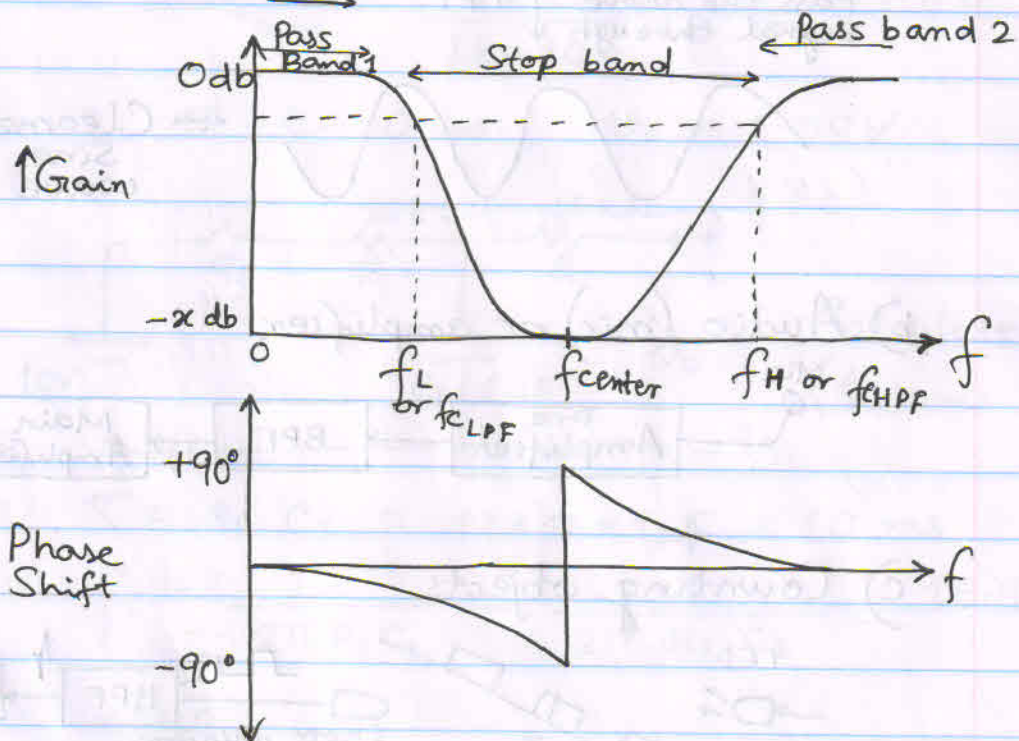 Pass Band 1
Stop band
Pass band 2
0db
↑Gain
-x db
0
fL or fcLPF
fcenter
fH or fcHPF
f
+90°
Phase Shift
f
-90°